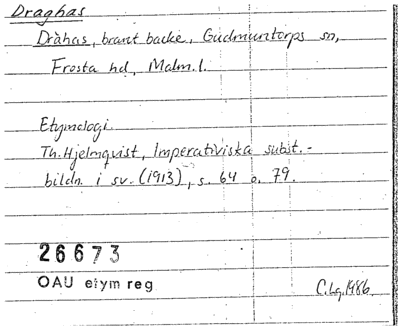 Draghas
Dràhas, brant backe, Gudmuntorps sn,
Frosta hd, Malm. l.
Etymologi
Th. Hjelmqvist, Imperativiska subst.-
bildn. i sv. (1913), s. 64 o. 79.
26673
OAU etym reg
C.Lg. 1986.